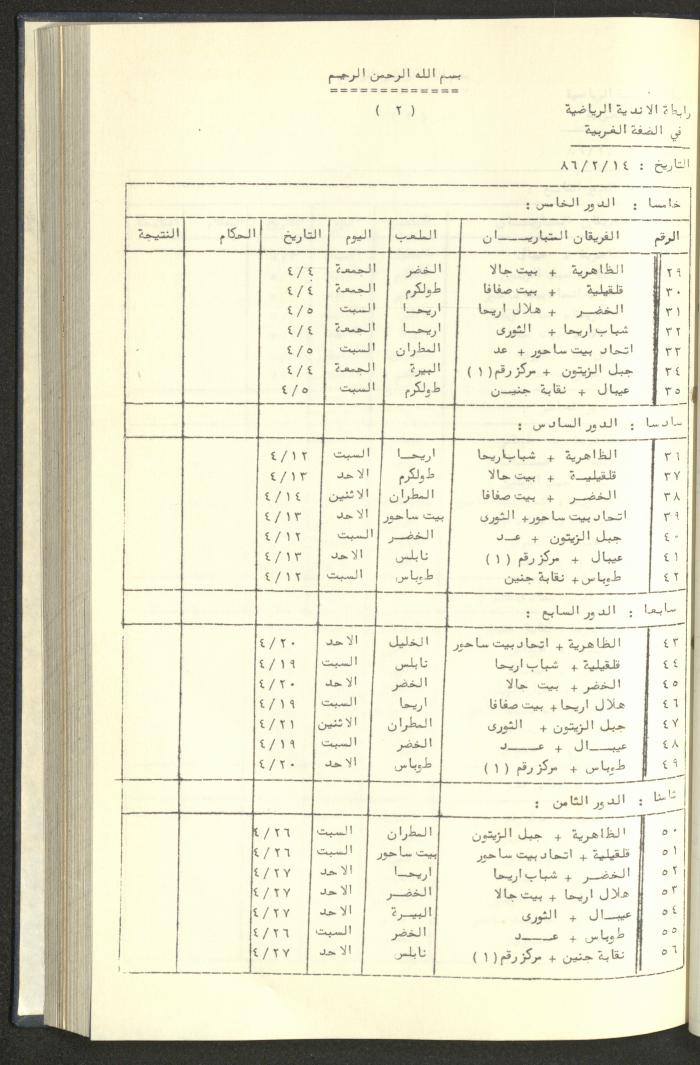 بسم الله الرحمن الرحيم
=============
( ٢ )
رابطة الاندية الرياضية
في الضفة الغربية
التاريخ : ٨٦/٢/١٤
خامسا : الدور الخامس :
الرقم الفريقان المتباريـــــان الملعب اليوم التاريخ الحكام النتيجة
٢٩ الظاهرية + بيت جالا الخضر الجمعة ٤/٤
٣٠ قلقيلية + بيت صفافا طولكرم الجمعة ٤/٤
٣١ الخضـر + هلال اريحا اريحـا السبت ٤/٥
٣٢ شباب اريحا + الثورى اريحـا الجمعة ٤/٤
٣٣ اتحاد بيت ساحور + عد المطران السبت ٤/٥
٣٤ جبل الزيتون + مركز رقم (١) البيرة الجمعة ٤/٤
٣٥ عيبال + نقابة جنيـن طولكرم السبت ٤/٥
سادسا : الدور السادس :
٣٦ الظاهرية + شباب اريحا اريحـا السبت ٤/١٢
٣٧ قلقيليـة + بيت جالا طولكرم الاحد ٤/١٣
٣٨ الخضـر + بيت صفافا المطران الاثنين ٤/١٤
٣٩ اتحاد بيت ساحور + الثورى بيت ساحور الاحد ٤/١٣
٤٠ جبل الزيتون + عـد الخضـر السبت ٤/١٢
٤١ عيبال + مركز رقم (١) نابلس الاحد ٤/١٣
٤٢ طوباس + نقابة جنين طوباس السبت ٤/١٢
سابعا : الدور السابع :
٤٣ الظاهرية + اتحاد بيت ساحور الخليل الاحد ٤/٢٠
٤٤ قلقيلية + شباب اريحا نابلس السبت ٤/١٩
٤٥ الخضر + بيت جالا الخضر الاحد ٤/٢٠
٤٦ هلال اريحا + بيت صفافا اريحا السبت ٤/١٩
٤٧ جبل الزيتون + الثورى المطران الاثنين ٤/٢١
٤٨ عيبــال + عــــد الخضر السبت ٤/١٩
٤٩ طوباس + مركز رقم (١) طوباس الاحد ٤/٢٠
ثامنا : الدور الثامن :
٥٠ الظاهرية + جبل الزيتون المطران السبت ٤/٢٦
٥١ قلقيلية + اتحاد بيت ساحور بيت ساحور السبت ٤/٢٦
٥٢ الخضـر + شباب اريحا اريحـا الاحد ٤/٢٧
٥٣ هلال اريحا + بيت جالا الخضـر الاحد ٤/٢٧
٥٤ عيبـال + الثورى البيـرة الاحد ٤/٢٧
٥٥ طوباس + عــــد الخضر السبت ٤/٢٦
٥٦ نقابة جنين + مركز رقم (١) نابلس الاحد ٤/٢٧